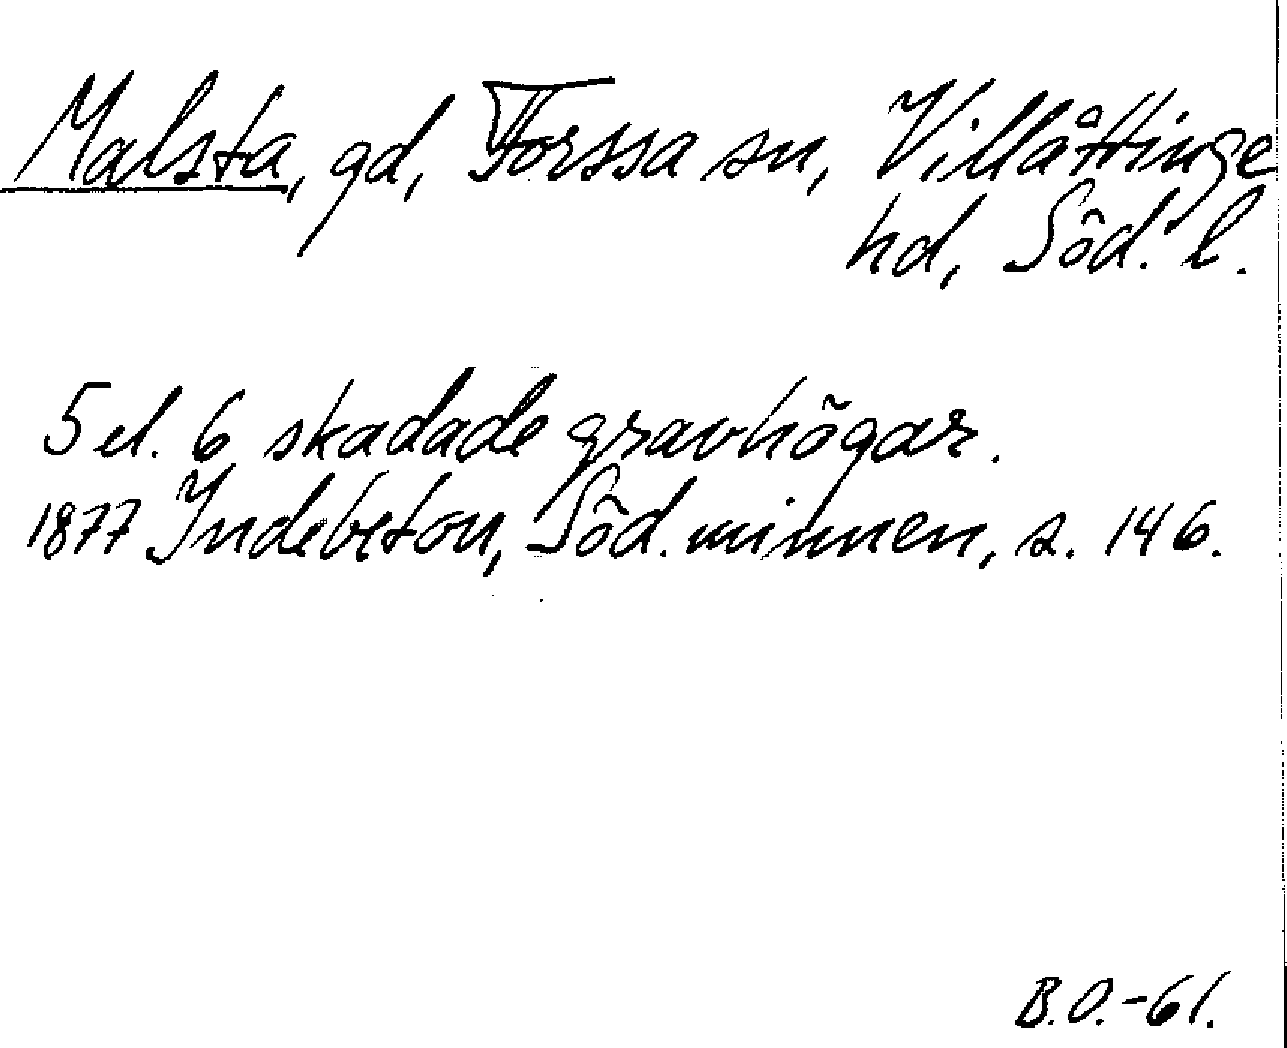 Malsta, gd, Forssa sn, Villåttinge
hd, Söd. l.
5 el. 6 skadade gravhögar.
1877 Indebetou, Söd. minnen, s. 146.
B.O.-61.